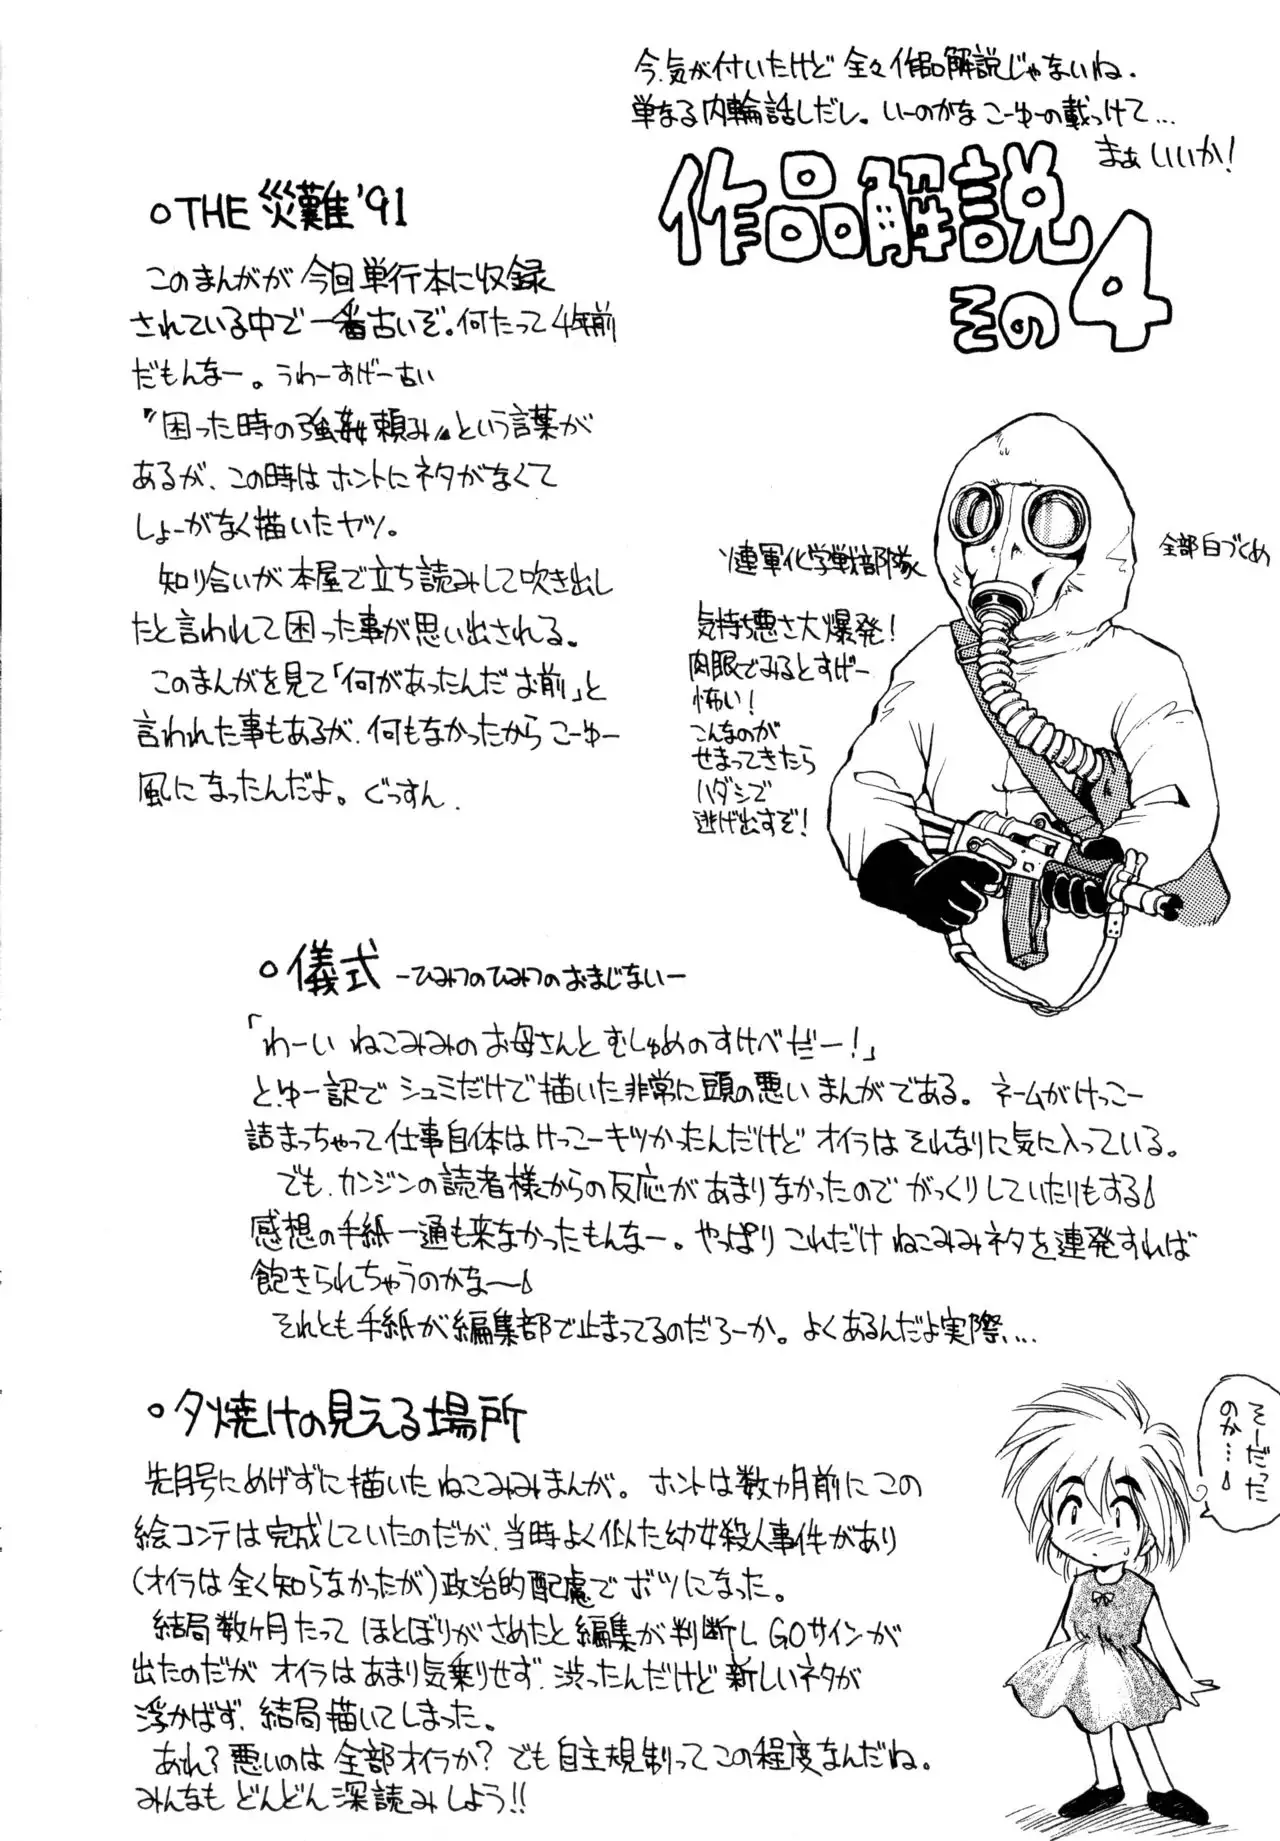 今、気が付いたけど 全々作品解説じゃないね.
単なる内輪話しだし。いーのかな こーゆーの載っけて…
まぁいいか!
作品解説
その4
○THE 災難'91
このまんがが今回単行本に収録
されている中で一番古いぞ。何たって4年前
だもんなー。うわーすげー古い
〝困った時の強姦頼み〟という言葉が
あるが、この時はホントにネタがなくて
しょーがなく描いたヤツ。
知り合いが本屋で立ち読みして吹き出し
たと言われて困った事が思い出される。
このまんがを見て「何があったんだお前」と
言われた事もあるが、何もなかったからこーゆー
風になったんだよ。ぐっすん.
ソ連軍化学戦部隊
全部白づくめ
気持ち悪さ大爆発!
肉眼でみるとすげー
怖い!
こんなのが
せまってきたら
ハダシで
逃げ出すぞ!
○儀式 ーひみつのひみつのおまじないー
「わーい ねこみみのお母さんとむしゅめのすけべだー!」
と、ゆー訳でシュミだけで描いた非常に頭の悪いまんがである。ネームがけっこー
詰まっちゃって仕事自体はけっこーキツかったんだけど オイラはそれなりに気に入っている。
でも、カンジンの読者様からの反応があまりなかったので がっくりしていたりもする
感想の手紙一通も来なかったもんなー。やっぱりこれだけねこみみネタを連発すれば
飽きられちゃうのかな〜
それとも手紙が編集部で止まってるのだろーか。よくあるんだよ実際…
○夕焼けの見える場所
先月号にめげずに描いたねこみみまんが。ホントは数カ月前にこの
絵コンテは完成していたのだが、当時よく似た幼女殺人事件があり
(オイラは全く知らなかったが)政治的配慮でボツになった。
結局数ヶ月たって ほとぼりがさめたと編集が判断しGOサインが
出たのだがオイラはあまり気乗りせず、渋ったんだけど新しいネタが
浮かばず、結局描いてしまった。
あれ?悪いのは全部オイラか?でも自主規制ってこの程度なんだね。
みんなもどんどん深読みしよう!!
そーだった
のか…